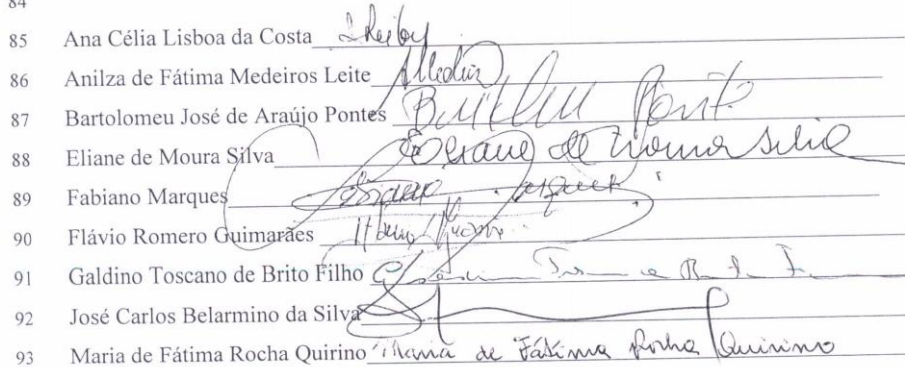 84
85 Ana Célia Lisboa da Costa
86 Anilza de Fátima Medeiros Leite
87 Bartolomeu José de Araújo Pontes
88 Eliane de Moura Silva Eliane de Moura Silva
89 Fabiano Marques
90 Flávio Romero Guimarães
91 Galdino Toscano de Brito Filho
92 José Carlos Belarmino da Silva
93 Maria de Fátima Rocha Quirino Maria de Fátima Rocha Quirino